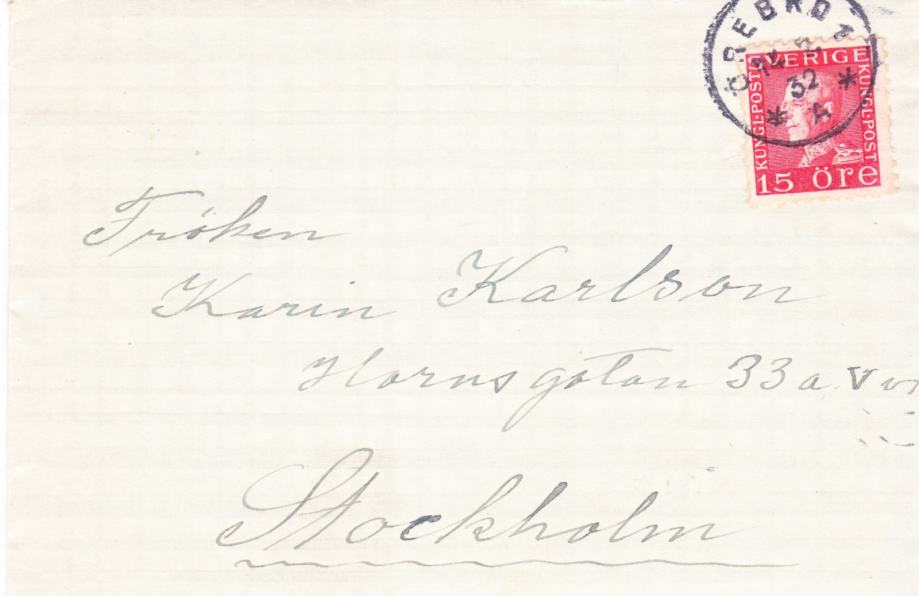 ÖREBRO 1
14 2
32
* A *
SVERIGE
KUNGL·POST
KUNGL·POST
15 öre
Fröken
Karin Karlson
Hornsgatan 33 a. V
Stockholm